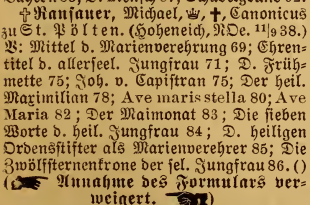 ✝Ransauer, Michael, ♛, ✝, Canonicus
zu St. Pölten. (Hoheneich, NOe. 11/9 38.)
V: Mittel d. Marienverehrung 69; Ehren-
titel d. allerseel. Jungfrau 71; D. Früh-
mette 75; Joh. v. Capistran 75; Der heil.
Maximilian 78; Ave maris stella 80; Ave
Maria 82; Der Maimonat 83; Die sieben
Worte d. heil. Jungfrau 84; D. heiligen
Ordensstifter als Marienverehrer 85; Die
Zwölfsternenkrone der sel. Jungfrau 86. ()
(☛ Annahme des Formulars ver-
weigert. ☚)